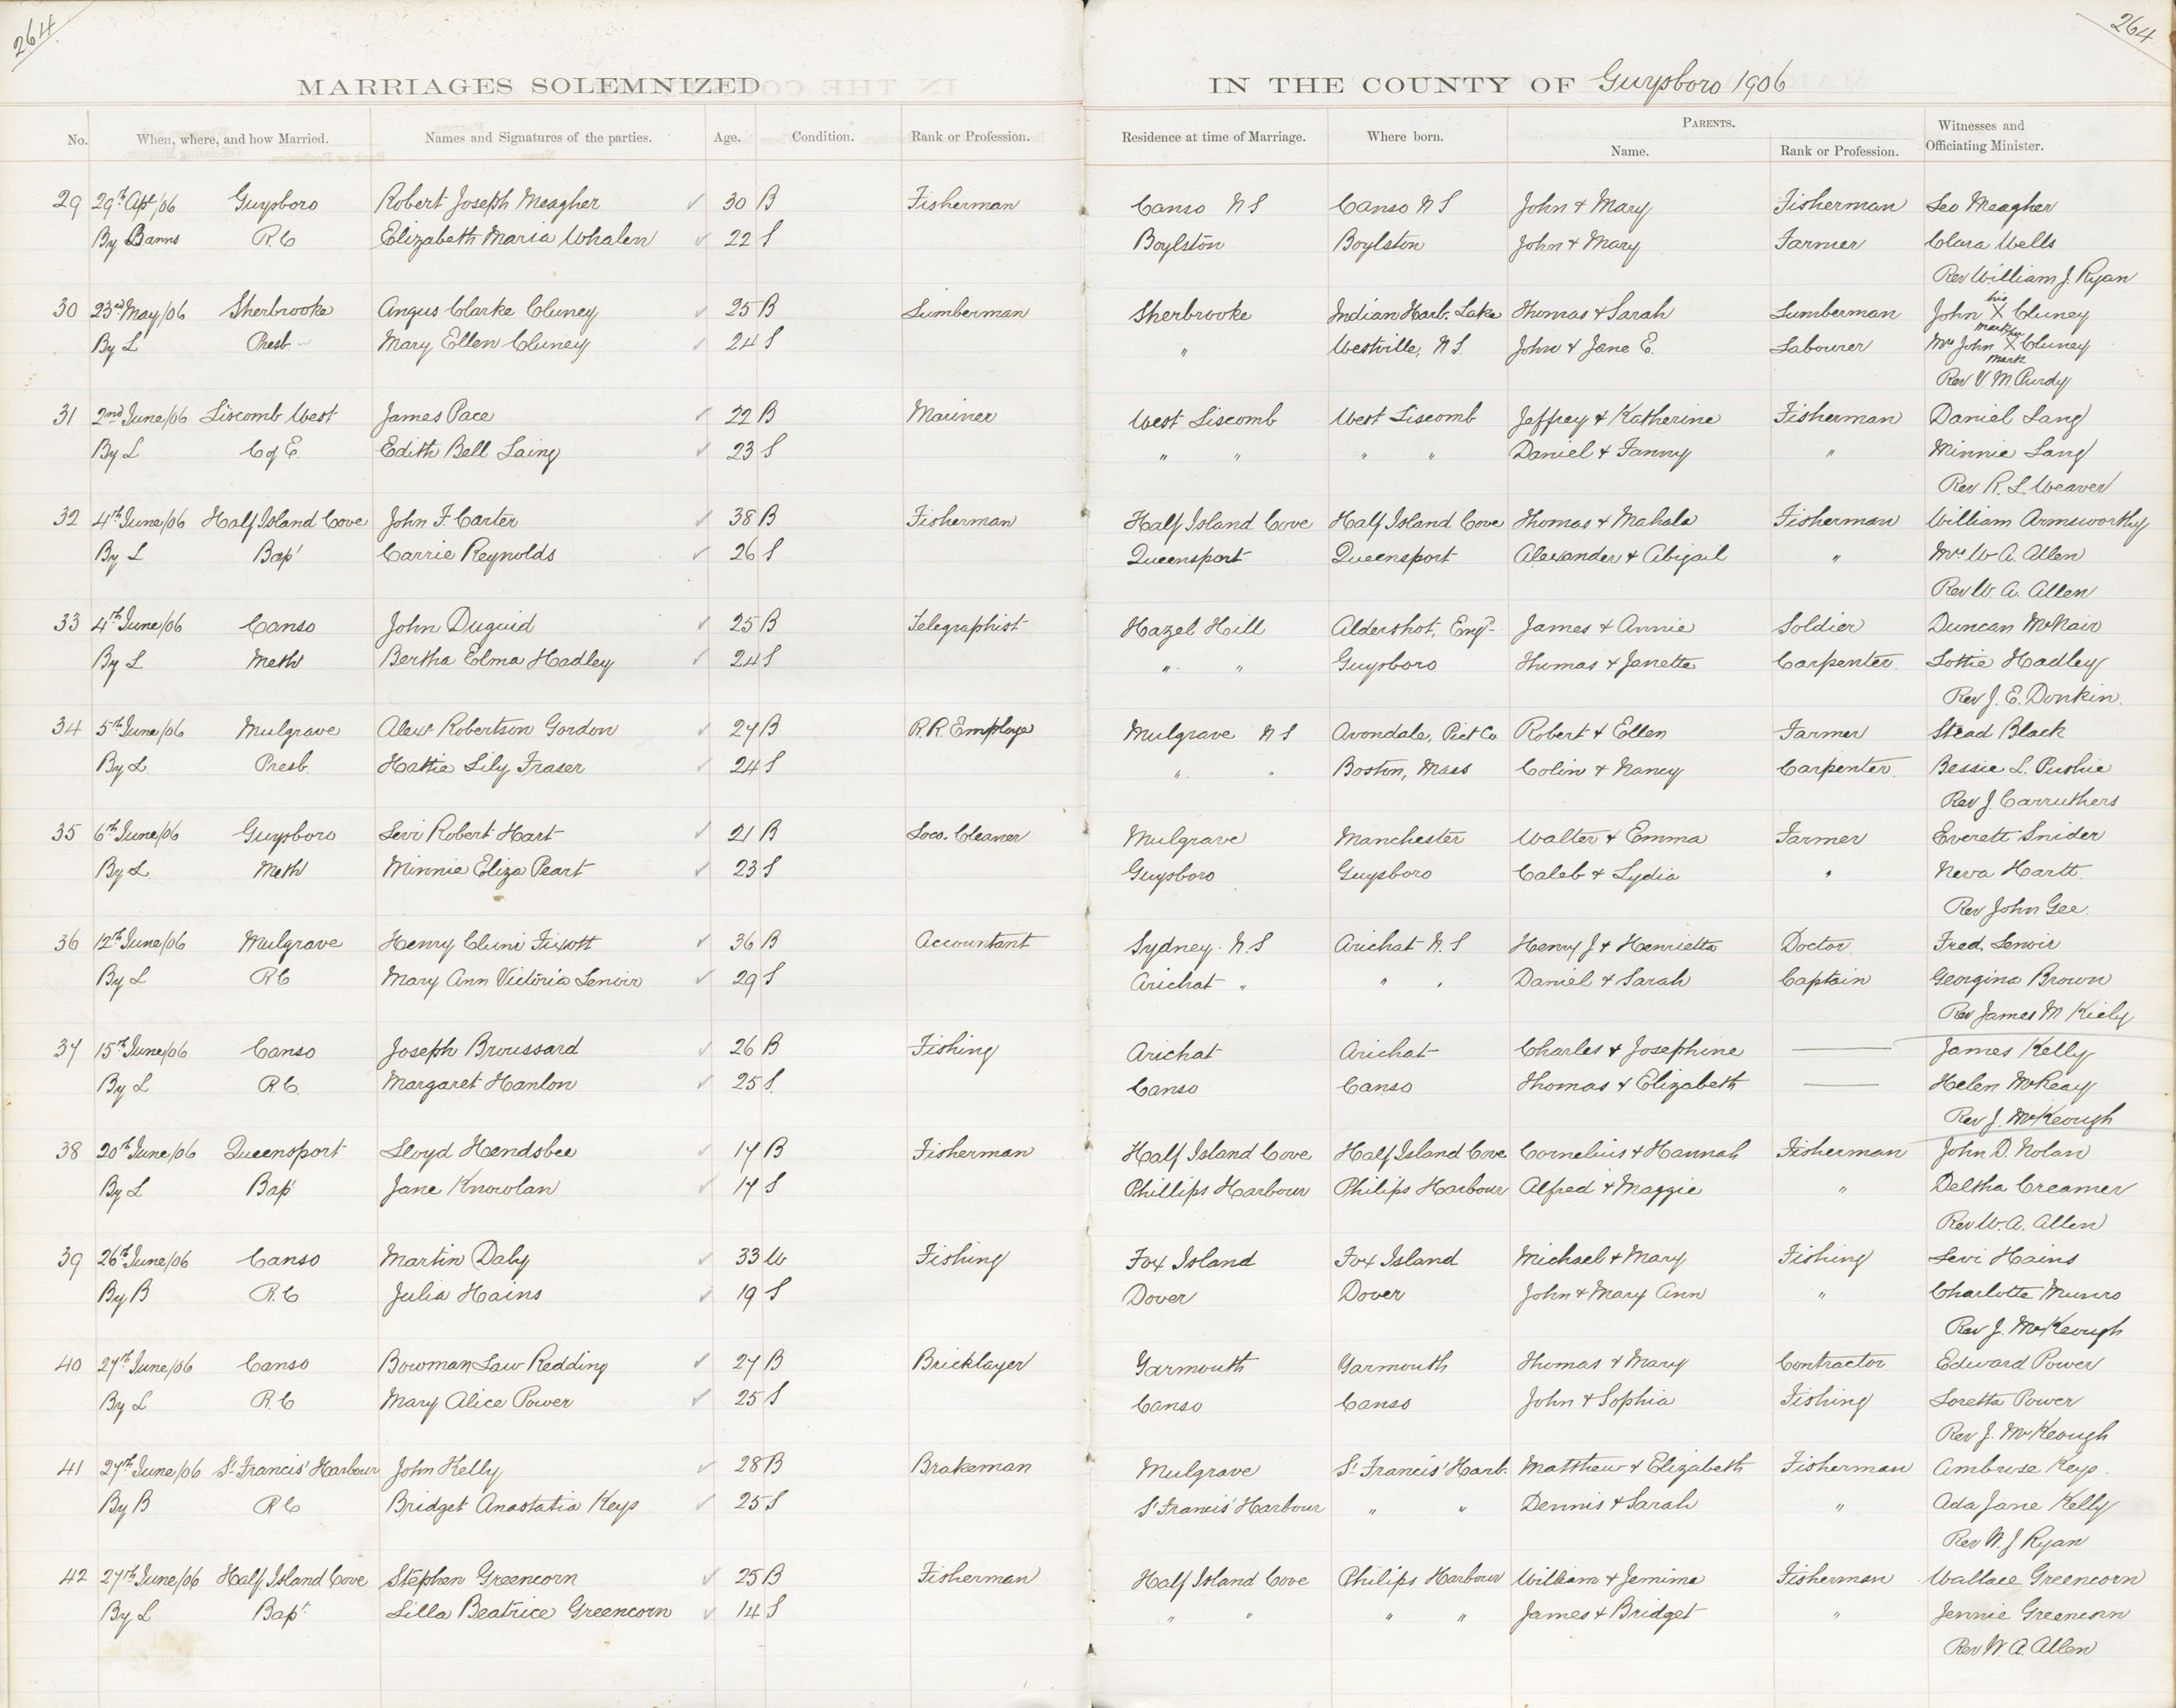 264
264
MARRIAGES SOLEMNIZED IN THE COUNTY OF Guysboro 1906
No. When, where, and how Married. Names and Signatures of the parties. Age. Condition. Rank or Profession. Residence at time of Marriage. Where born. PARENTS. Name. Rank or Profession. Witnesses and Officiating Minister.
29 29th Apl/06 Guysboro Robert Joseph Meagher 30 B Fisherman Canso N S Canso N S John + Mary Fisherman Leo Meagher
By Banns R.C Elizabeth Maria Whalen 22 S Boylston Boylston John + Mary Farmer Clara Wells
Rev William J. Ryan
30 23rd May/06 Sherbrooke Angus Clarke Cluney 25 B Lumberman Sherbrooke Indian Harb. Lake Thomas + Sarah Lumberman John his X mark Cluney
By L Presb. Mary Ellen Cluney 24 S " Westville, N S. John + Jane E. Labourer Mrs John her X mark Cluney
Rev V M. Purdy
31 2nd June/06 Liscomb West James Pace 22 B Mariner West Liscomb West Liscomb Jeffrey + Katherine Fisherman Daniel Lang
By L C of E. Edith Bell Laing 23 S " " " " Daniel + Fanny " Minnie Lang
Rev R. L. Weaver
32 4th June/06 Half Island Cove John F. Carter 38 B Fisherman Half Island Cove Half Island Cove Thomas + Mahala Fisherman William Armsworthy
By L Bapt Carrie Reynolds 26 S Queensport Queensport Alexander + Abigail " Mrs W. A. Allen
Rev W. A. Allen
33 4th June/06 Canso John Duguid 25 B Telegraphist Hazel Hill Aldershot, Engd James + Annie Soldier Duncan McNair
By L Meth Bertha Elma Hadley 24 S " " Guysboro Thomas + Janette Carpenter Lottie Hadley
Rev J. E. Donkin.
34 5th June/06 Mulgrave Alexr Robertson Gordon 27 B R. R. Employe Mulgrave N S Avondale, Pict Co Robert + Ellen Farmer Stead Black
By L Presb. Hattie Lily Fraser 24 S " " Boston, Mass Colin + Nancy Carpenter. Bessie L. Pushie
Rev J. Carruthers
35 6th June/06 Guysboro Levi Robert Hart 21 B Loco. Cleaner Mulgrave Manchester Walter + Emma Farmer Everett Snider
By L. Meth Minnie Eliza Peart 23 S Guysboro Guysboro Caleb + Lydia " Neva Hartt
Rev John Gee.
36 12th June/06 Mulgrave Henry Cluni Fixott 36 B Accountant Sydney N. S Arichat N. S Henry J + Henrietta Doctor Fred. Lenoir
By L R C Mary Ann Victoria Lenoir 29 S Arichat " " " Daniel + Sarah Captain Georgina Brown
Rev James M Kiely
37 15th June/06 Canso Joseph Broussard 26 B Fishing Arichat Arichat Charles + Josephine — James Kelly
By L R.C. Margaret Hanlon 25 S. Canso Canso Thomas + Elizabeth — Helen McKeay
Rev J. McKeough
38 20th June/06 Queensport Lloyd Hendsbee 17 B Fisherman Half Island Cove Half Island Cove Cornelius + Hannah Fisherman John D. Nolan
By L Bapt Jane Knowlan 17 S Phillips Harbour Philips Harbour Alfred + Maggie " Deltha Creamer
Rev W. A. Allen
39 26th June/06 Canso Martin Daly 33 W Fishing Fox Island Fox Island Michael + Mary Fishing Levi Hains
By B R.C Julia Hains 19 S Dover Dover John + Mary Ann " Charlotte Munro
Rev J. McKeough
40 27th June/06 Canso Bowman Law Redding 27 B Bricklayer Yarmouth Yarmouth Thomas + Mary Contractor Edward Power
By L R.C Mary Alice Power 25 S Canso Canso John + Sophia Fishing Loretta Power
Rev J. McKeough
41 27th June/06 St Francis' Harbour John Kelly 28 B Brakeman Mulgrave St Francis' Harb. Matthew + Elizabeth Fisherman Ambrose Keys
By B R C Bridget Anastatia Keys 25 S St Francis' Harbour " " Dennis + Sarah " Ada Jane Kelly
Rev W. J Ryan
42 27th June/06 Half Island Cove Stephen Greencorn 25 B Fisherman Half Island Cove Philips Harbour William + Jemima Fisherman Wallace Greencorn
By L Bapt Lilla Beatrice Greencorn 14 S " " " " James + Bridget " Jennie Greencorn
Rev W. A. Allen